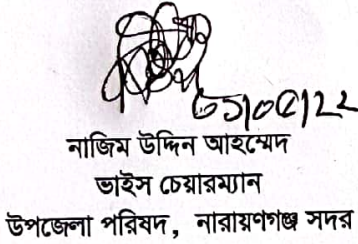 ৩১/০৫/২২
নাজিম উদ্দিন আহম্মেদ
ভাইস চেয়ারম্যান
উপজেলা পরিষদ, নারায়ণগঞ্জ সদর